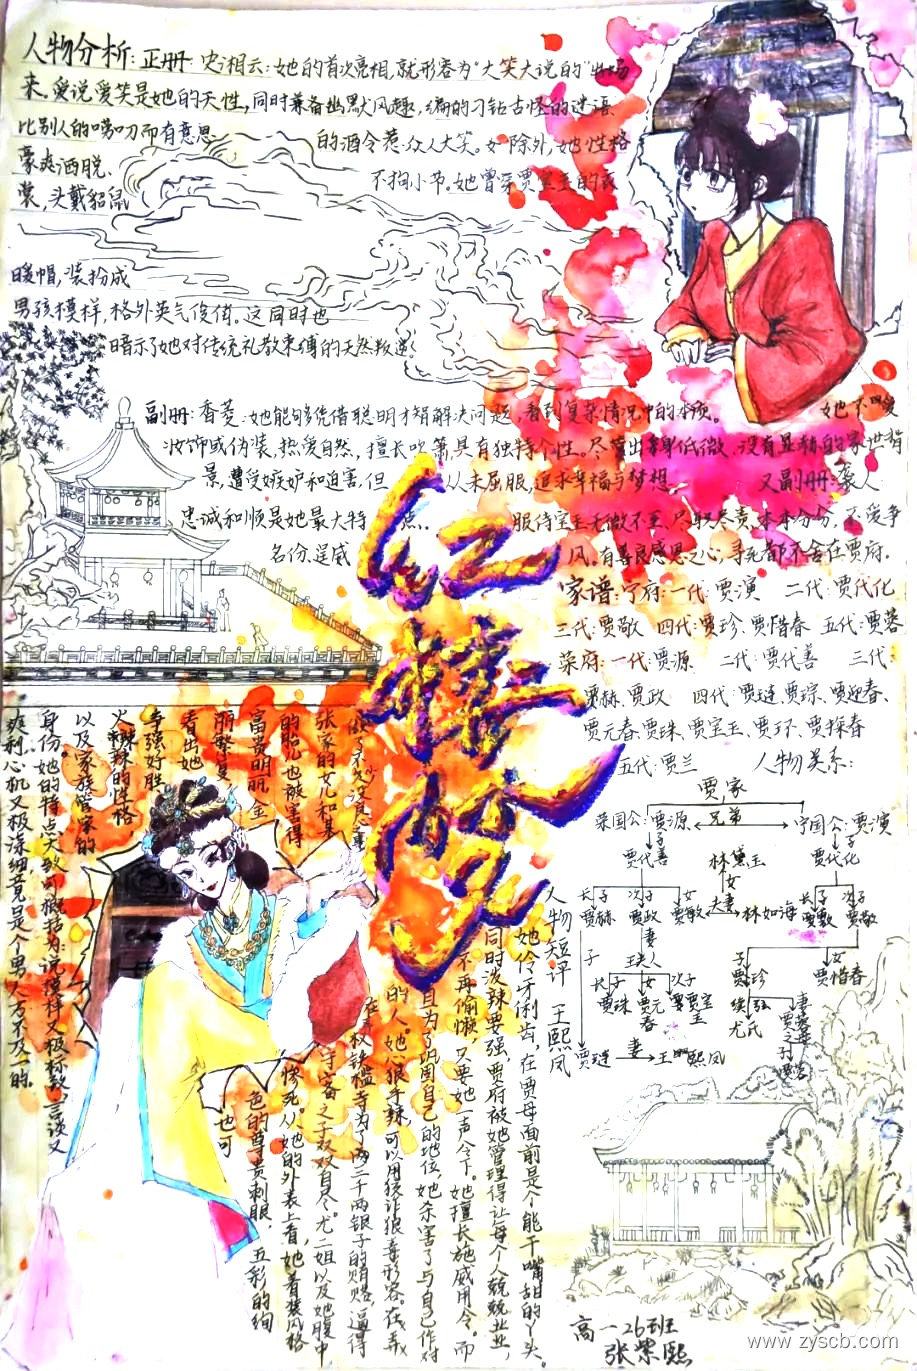 人物分析：正册：史湘云：她的首次亮相，就形容为“大笑大说的”出场
来。爱说爱笑是她的天性，同时兼备幽默风趣，编的刁钻古怪的谜语
比别人的唠叨而有意思 的酒令惹众人大笑。如除外，她性格
豪爽洒脱、 不拘小节。她曾穿贾宝玉的衣
裳，头戴貂鼠
暖帽，装扮成
男孩模样，格外英气俊俏。这同时也
暗示了她对传统礼教束缚的天然叛逆。
副册：香菱：她能够凭借聪明才智解决问题，看到复杂情况中的本质。 她不爱
妆饰或伪装，热爱自然，擅长吹箫具有独特个性。尽管出身低微、没有显赫的家世背
景，遭受嫉妒和迫害，但 从未屈服，追求幸福与梦想 又副册：袭人
忠诚和顺是她最大特 点， 服侍宝玉无微不至、尽职尽责，本本分分，不爱争
名份、逞威 风。有善良感恩之心，寻死都不舍在贾府。
红楼梦
家谱：宁府：一代：贾演 二代：贾代化
三代：贾敬 四代：贾珍、贾惜春 五代：贾蓉
荣府：一代：贾源 二代：贾代善 三代：
贾赦、贾政 四代：贾琏、贾琮、贾迎春、
贾元春、贾珠、贾宝玉、贾环、贾探春
五代：贾兰 人物关系：
贾家
荣国公：贾源 兄弟 宁国公：贾演
子 子
贾代善 林黛玉 贾代化
女
长子 次子 女 长子 次子
贾赦 贾政 贾敏 夫妻 林如海 贾敷 贾敬
子 妻 子 女
王夫人 贾珍 贾惜春
长子 女 次子 妻
贾珠 贾元春 贾宝玉 尤氏
子
贾琏 妻 王熙凤
人物短评 王熙凤
她伶牙俐齿，在贾母面前是个能干嘴甜的丫头。
同时泼辣要强、贾府被她管理得让每个人兢兢业业，
不再偷懒，只要她一声令下。她擅长施威用令。而
且为了巩固自己的地位，她杀害了与自己作对
的人。她心狠手辣，可以用狡诈狠毒形容。在弄
在权铁槛寺为了两三千两银子的贿赂，逼得
守备之子双双自尽。尤二姐以及她腹中
惨死。从她的外表上看，她着装风格
色的尊贵刺眼、五彩的绚
也可
张家的女儿和某
的胎儿也被害得
富贵明丽，金
丽繁复
看出她
争强好胜
火辣辣的性格，
以及家族管家的
身份。她的特点大致可概括为：说模样又极标致，言谈又
爽利，心机又极深细，竟是个男人万不及一的。
高一26班
张紫熙
www.zyscb.com